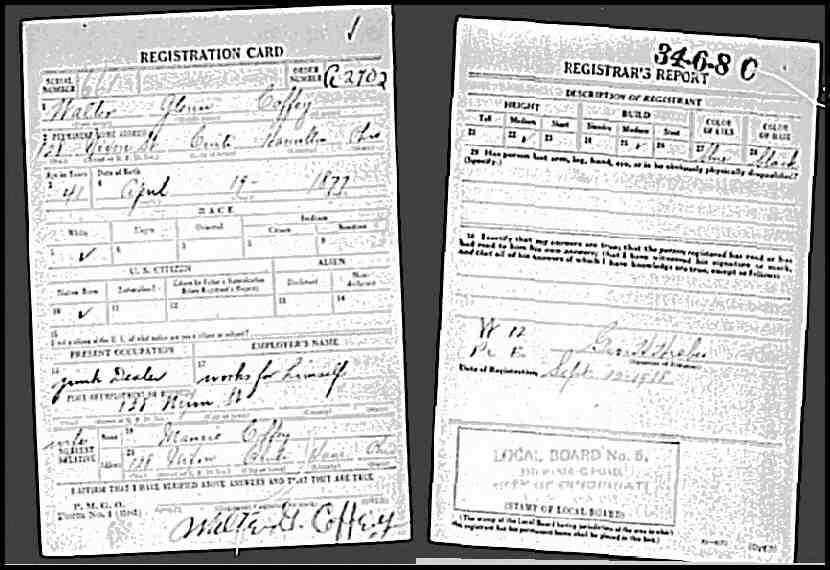 REGISTRATION CARD
SERIAL NUMBER 661 ORDER NUMBER A2702
1 Walter Glenn Coffey
2 PERMANENT HOME ADDRESS
128 St Cinti Hamilton Ohio
Age in Years Date of Birth
3 41 4 April 19- 1877
RACE
White Negro Oriental Indian
Citizen
5 ✓ 6 7 8 9
U. S. CITIZEN ALIEN
Native Born Naturalized Declarant Non-declarant
10 ✓ 11 12 13 14
15
PRESENT OCCUPATION EMPLOYER'S NAME
16 Junk Dealer 17 works for himself
PLACE OF EMPLOYMENT OR BUSINESS
128 St
NEAREST RELATIVE Name 19 Coffey
Address 20 128 Cinti Ohio
I AFFIRM THAT I HAVE VERIFIED ABOVE ANSWERS AND THAT THEY ARE TRUE
P. M. G. O.
Form No. 1 (Red)
Walter G. Coffey
34-6-8 C
REGISTRAR'S REPORT
DESCRIPTION OF REGISTRANT
HEIGHT BUILD COLOR OF EYES COLOR OF HAIR
Tall Medium Short Slender Medium Stout
21 22 ✓ 23 24 25 ✓ 26 27 Blue 28 Black
29 Has person lost arm, leg, hand, eye, or is he obviously physically disqualified?
(Specify.)
30 I certify that my answers are true; that the person registered has read or has
had read to him his own answers; that I have witnessed his signature or mark,
and that all of his answers of which I have knowledge are true, except as follows:
W 12
Pr E
Date of Registration Sept 12-1918
LOCAL BOARD No. 5,
CITY OF CINCINNATI
(STAMP OF LOCAL BOARD)
(The stamp of the Local Board having jurisdiction of the area in which
the registrant has his permanent home shall be placed in this box.)